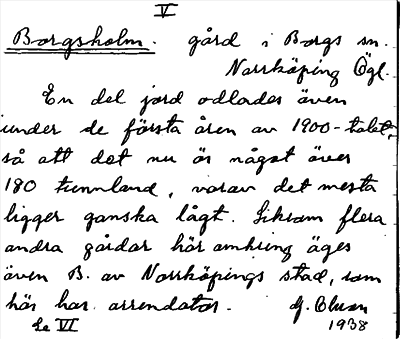 V
Borgsholm. gård i Borgs sn.
Norrköping Ögl.
En del jord odlades även
under de första åren av 1900-talet,
så att det nu är något över
180 tunnland, varav det mesta
ligger ganska lågt. Liksom flera
andra gårdar här omkring äges
även B. av Norrköpings stad, som
här har arrendator. G.
Se VI 1938